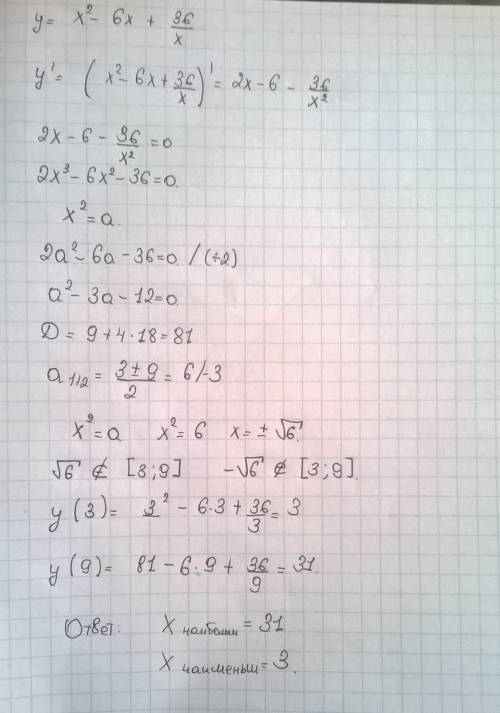 y = x² - 6x + 36/x
y' = (x² - 6x + 36/x)' = 2x - 6 - 36/x²
2x - 6 - 36/x² = 0
2x³ - 6x² - 36 = 0.
x² = a.
2a² - 6a - 36 = 0 / (÷2)
a² - 3a - 12 = 0.
D = 9 + 4 · 18 = 81
a 1/2 = (3 ± 9)/2 = 6/-3
x² = a x² = 6 x = ± √6.
√6 ∉ [3; 9] -√6 ∉ [3; 9].
y (3) = 3² - 6·3 + 36/3 = 3
y (9) = 81 - 6·9 + 36/9 = 31.
Ответ: X наибольш = 31
X наименьш = 3.